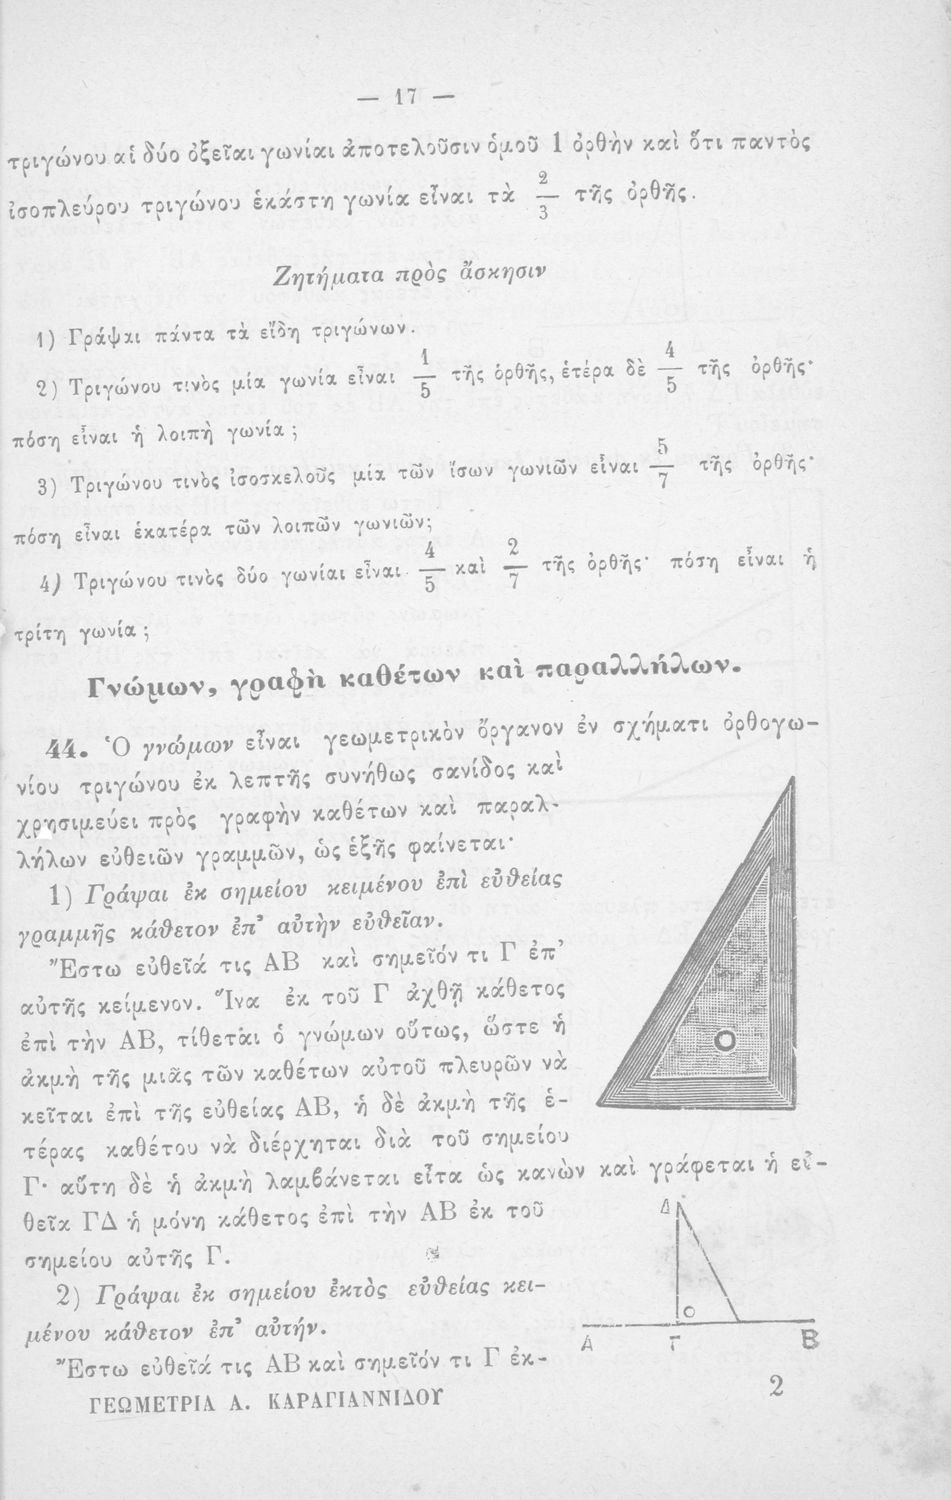 — 17 —
τριγώνου αἱ δύο ὀξεῖαι γωνίαι ἀποτελοῦσιν ὁμοῦ 1 ὀρθὴν καὶ ὅτι παντὸς
ἰσοπλεύρου τριγώνου ἑκάστη γωνία εἶναι τὰ 2/3 τῆς ὀρθῆς.
Ζητήματα πρὸς ἄσκησιν
1) Γράψαι πάντα τὰ εἴδη τριγώνων.
2) Τριγώνου τινὸς μία γωνία εἶναι 1/5 τῆς ὀρθῆς, ἑτέρα δὲ 4/5 τῆς ὀρθῆς·
πόση εἶναι ἡ λοιπὴ γωνία ;
3) Τριγώνου τινὸς ἰσοσκελοῦς μία τῶν ἴσων γωνιῶν εἶναι 5/7 τῆς ὀρθῆς·
πόση εἶναι ἑκατέρα τῶν λοιπῶν γωνιῶν;
4) Τριγώνου τινὸς δύο γωνίαι εἶναι 4/5 καὶ 2/7 τῆς ὀρθῆς· πόση εἶναι ἡ
τρίτη γωνία ;
Γνώμων, γραφὴ καθέτων καὶ παραλλήλων.
44. Ὁ γνώμων εἶναι γεωμετρικὸν ὄργανον ἐν σχήματι ὀρθογω-
νίου τριγώνου ἐκ λεπτῆς συνήθως σανίδος καὶ
χρησιμεύει πρὸς γραφὴν καθέτων καὶ παραλ-
λήλων εὐθειῶν γραμμῶν, ὡς ἑξῆς φαίνεται·
1) Γράψαι ἐκ σημείου κειμένου ἐπὶ εὐθείας
γραμμῆς κάθετον ἐπ' αὐτὴν εὐθεῖαν.
Ἔστω εὐθεῖά τις ΑΒ καὶ σημεῖόν τι Γ ἐπ'
αὐτῆς κείμενον. Ἵνα ἐκ τοῦ Γ ἀχθῇ κάθετος
ἐπὶ τὴν ΑΒ, τίθεται ὁ γνώμων οὕτως, ὥστε ἡ
ἀκμὴ τῆς μιᾶς τῶν καθέτων αὐτοῦ πλευρῶν νὰ
κεῖται ἐπὶ τῆς εὐθείας ΑΒ, ἡ δὲ ἀκμὴ τῆς ἑ-
τέρας καθέτου νὰ διέρχηται διὰ τοῦ σημείου
Γ· αὕτη δὲ ἡ ἀκμὴ λαμβάνεται εἶτα ὡς κανὼν καὶ γράφεται ἡ εὐ-
θεῖα ΓΔ ἡ μόνη κάθετος ἐπὶ τὴν ΑΒ ἐκ τοῦ
σημείου αὐτῆς Γ.
2) Γράψαι ἐκ σημείου ἐκτὸς εὐθείας κει-
μένου κάθετον ἐπ' αὐτήν.
Ἔστω εὐθεῖά τις ΑΒ καὶ σημεῖόν τι Γ ἐκ-
Δ
Α Γ Β
ΓΕΩΜΕΤΡΙΑ Α. ΚΑΡΑΓΙΑΝΝΙΔΟΥ
2